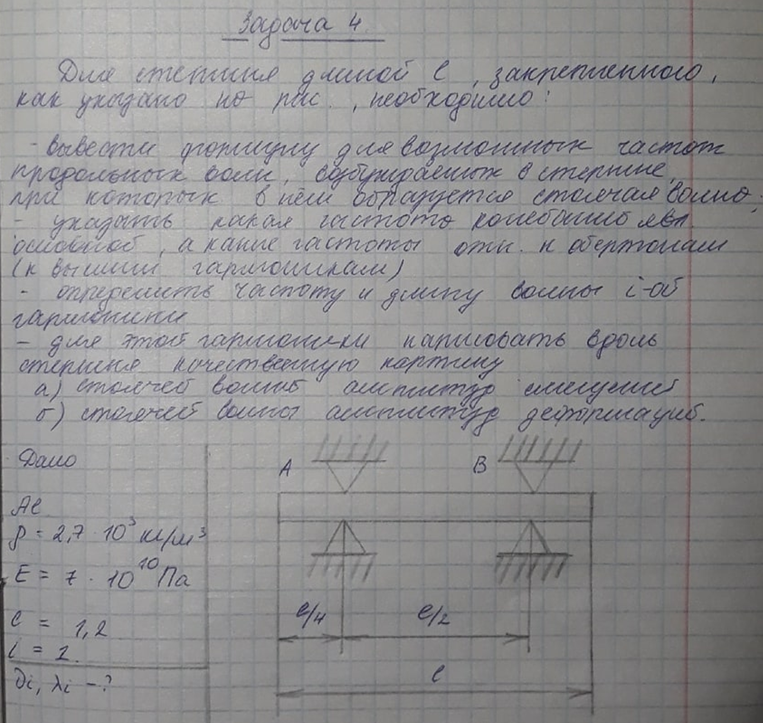 Задача 4
Для стержня длиной l, закрепленного,
как указано на рис., необходимо:
- вывести формулу для возможных частот
продольных волн, возбуждаемых в стержне,
при которых в нём образуется стоячая волна;
- указать какая частота колебаний явл
основной, а какие частоты отн. к обертонам
(к высшим гармоникам)
- определить частоту и длину волны i-ой
гармоники
- для этой гармоники нарисовать вдоль
стержня качественную картину
а) стоячей волны амплитуд смещений
б) стоячей волны амплитуд деформаций.
Дано
Al
ρ = 2,7 · 10³ кг/м³
E = 7 · 10¹⁰ Па
l = 1,2
i = 1
νi, λi - ?
A
B
l/4
l/2
l